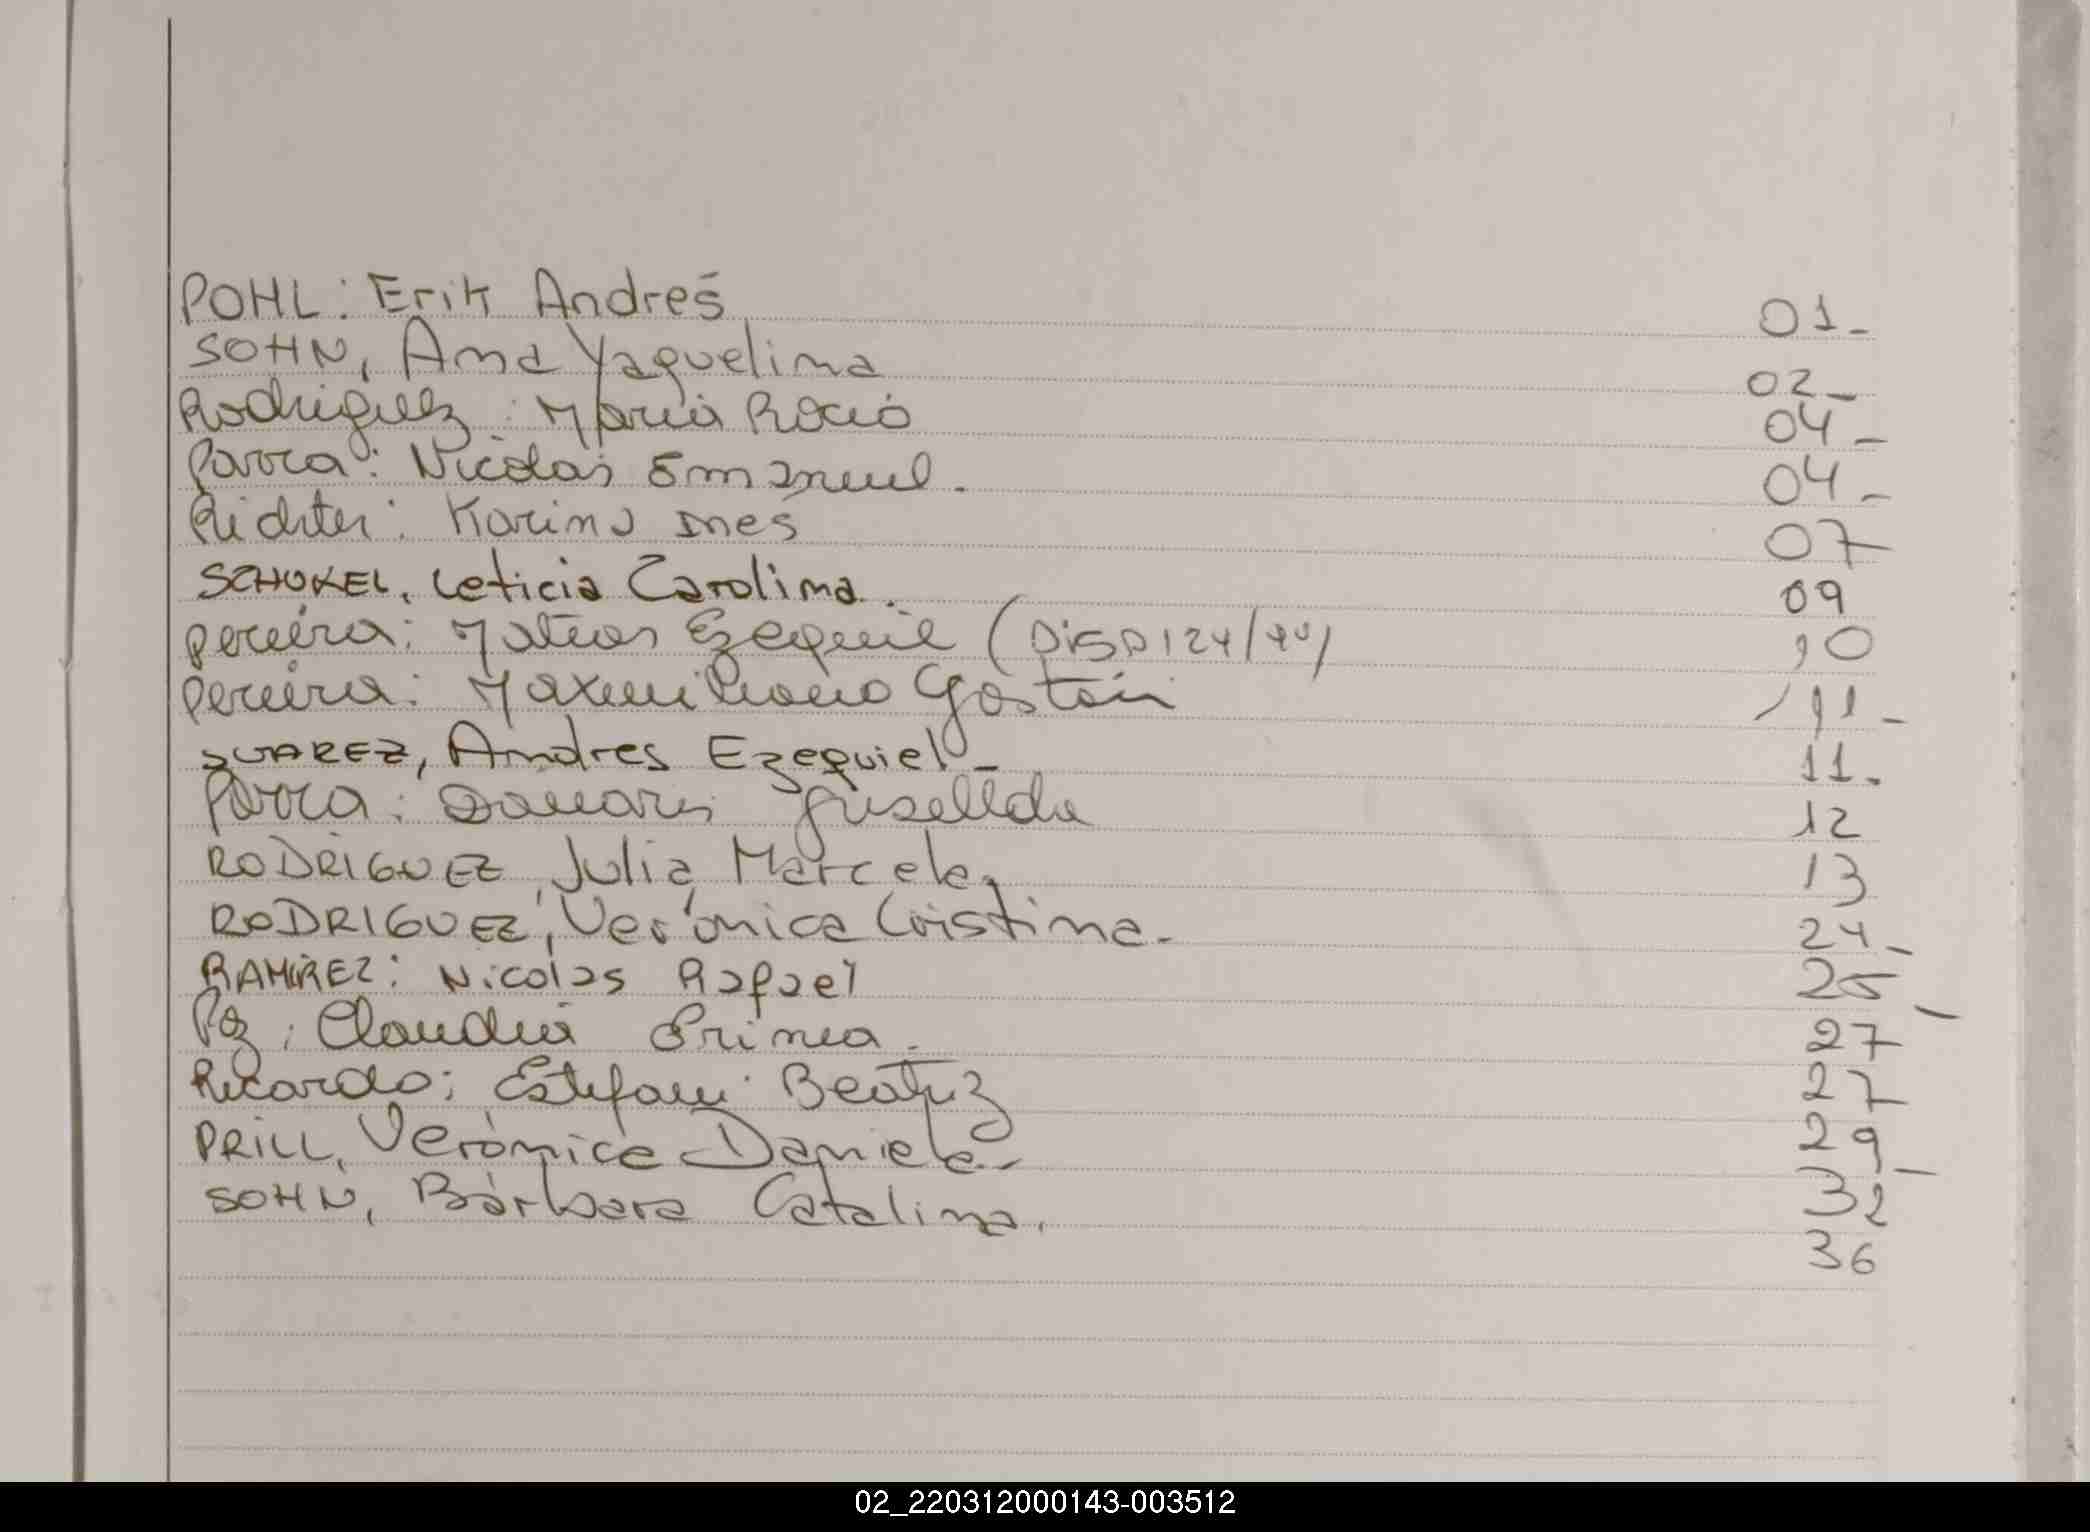 POHL: Erik Andrés 01-
SOHN, Ana Yaquelina 02-
Rodriguez: Maria Rocio 04-
Parra: Nicolas Emanuel. 04-
Richter: Karina Ines 07
SCHUKEL, Leticia Carolina. 09
Pereira: Matias Ezequiel (DISP 124/90) 10
Pereira: Maximiliano Gastón 11-
SUAREZ, Andres Ezequiel- 11.
Parra: Damaris Gisellda 12
RODRIGUEZ, Julia Marcela. 13
RODRIGUEZ, Verónica Cristina.- 24-
RAMIREZ: Nicolas Rafael 25-
Paz: Claudia Erinea. 27
Ricardo: Estefani Beatriz 27
PRILL, Verónica Daniela.- 29-
SOHN, Bárbara Catalina. 32
36
02_220312000143-003512